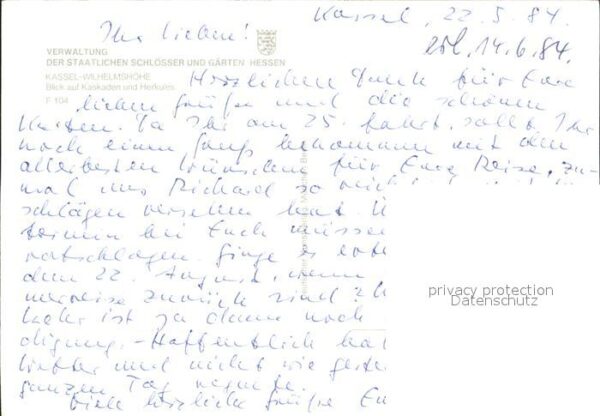 Kassel, 22.5.84.
Ihr Lieben!
14.6.84.
VERWALTUNG
DER STAATLICHEN SCHLÖSSER UND GÄRTEN HESSEN
KASSEL-WILHELMSHÖHE
Blick auf Kaskaden und Herkules
F 104
Herzlichen Dank für Eure
lieben Grüße und die schönen
Karten. Da Ihr am 25. fahrt, sollt Ihr
noch einen Gruß bekommen mit den
allerbesten Wünschen für Eure Reise, zu-
mal uns Richard so
schlägen versehen hat.
termin bei Euch müssen
ratschlagen. Ginge es
dem 22. August, wenn
zurück sind
ist ja dann noch
digung. - Hoffentlich
und nicht wie
ganzen Tag regnete.
Viele herzliche Grüße
privacy protection
Datenschutz